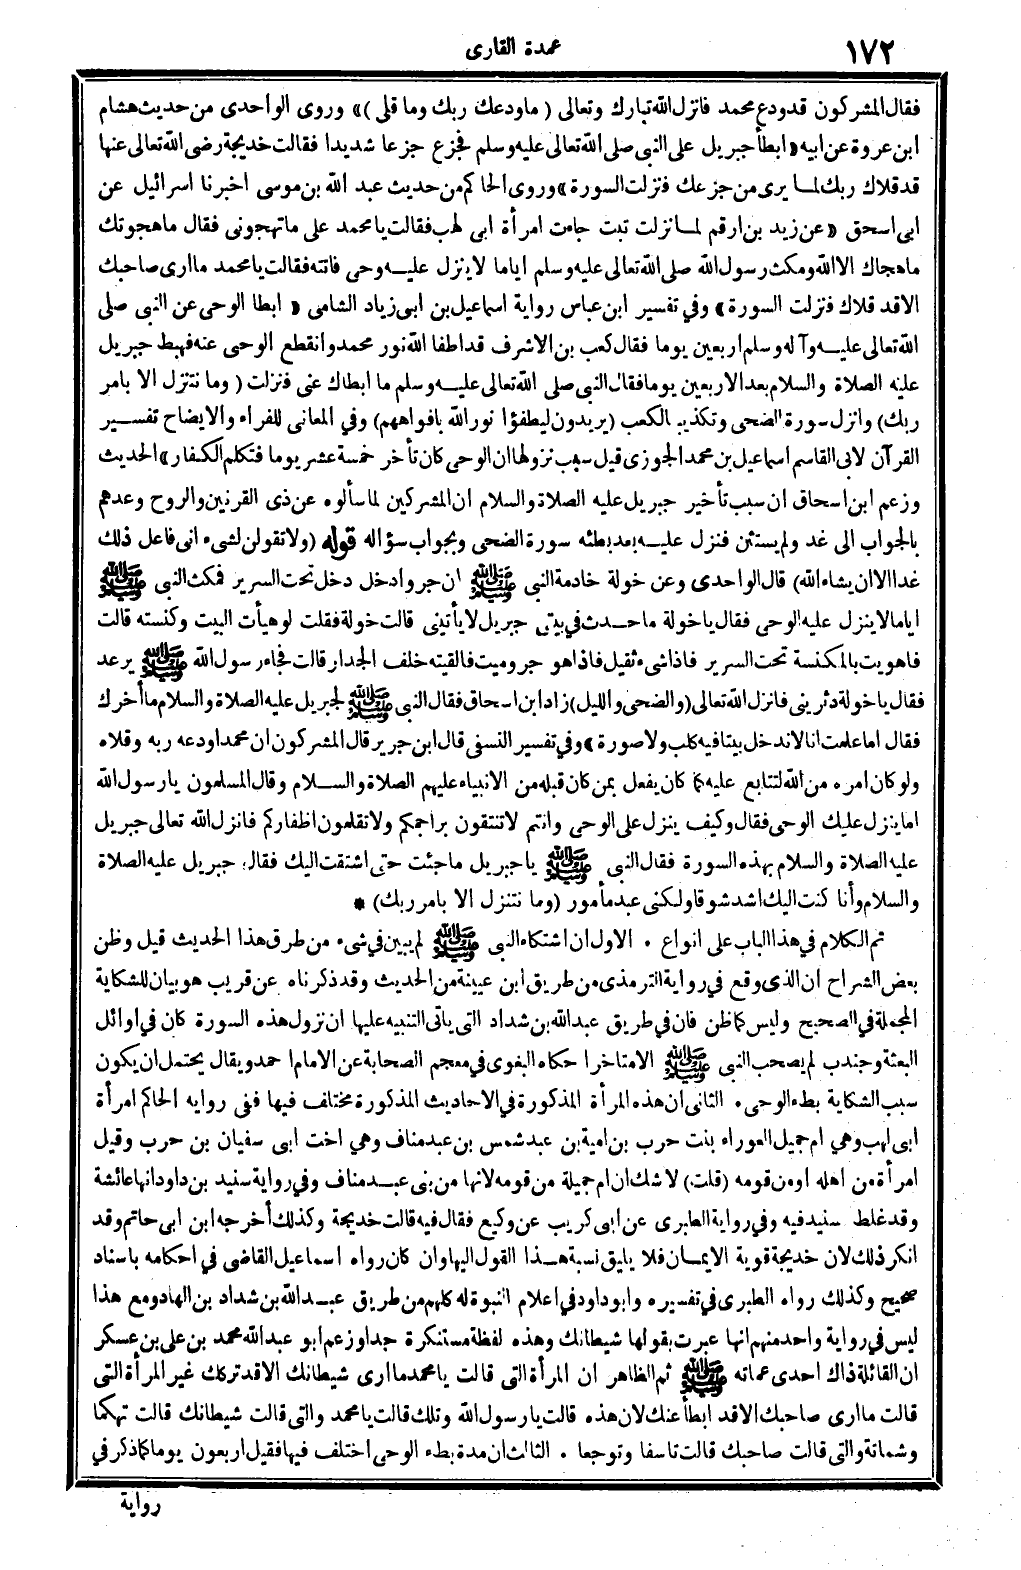 ١٧٢
عمدة القارى
فقال المشركون قدودع محمد فانزل الله تبارك وتعالى ( ماودعك ربك وما قلى )» وروى الواحدى من حديث هشام
ابن عروة عن ابيه « ابطأ جبريل على النبى صلى الله تعالى عليه وسلم فجزع جزعا شديدا فقالت خديجة رضى الله تعالى عنها
قد قلاك ربك لما يرى من جزعك فنزلت السورة » وروى الحاكم من حديث عبد الله بن موسى اخبرنا اسرائيل عن
ابى اسحق « عن زيد بن ارقم لما نزلت تبت جاءت امرأة ابى لهب فقالت يا محمد على ما تهجونى فقال ما هجوتك
ما هجاك الا الله ومكث رسول الله صلى الله تعالى عليه وسلم اياما لا ينزل عليه وحى فاتته فقالت يا محمد ما ارى صاحبك
الا قد قلاك فنزلت السورة » وفي تفسير ابن عباس رواية اسماعيل بن ابى زياد الشامى « ابطا الوحى عن النبى صلى
الله تعالى عليه وآله وسلم اربعين يوما فقال كعب بن الاشرف قد اطفا الله نور محمد وانقطع الوحى عنه فهبط جبريل
عليه الصلاة والسلام بعد الاربعين يوما فقال النبى صلى الله تعالى عليه وسلم ما ابطاك عنى فنزلت ( وما نتنزل الا بامر
ربك) وانزل سورة الضحى وتكذيب الكعب (يريدون ليطفؤا نور الله بافواههم) وفي المعانى للفراء والايضاح تفسير
القرآن لابى القاسم اسماعيل بن محمد الجوزى قيل سبب نزولها ان الوحى كان تأخر خمسة عشر يوما فتكلم الكفار » الحديث
وزعم ابن اسحاق ان سبب تأخير جبريل عليه الصلاة والسلام ان المشركين لما سألوه عن ذى القرنين والروح وعدهم
بالجواب الى غد ولم يستثن فنزل عليه بعد بطئه سورة الضحى وبجواب سؤاله قوله (ولا تقولن لشىء انى فاعل ذلك
غدا الا ان يشاء الله) قال الواحدى وعن خولة خادمة النبى ﷺ ان جروا دخل دخل تحت السرير فمكث النبى ﷺ
اياما لا ينزل عليه الوحى فقال يا خولة ما حدث في بيتى جبريل لا يأتينى قالت خولة فقلت لو هيأت البيت وكنسته قالت
فاهويت بالمكنسة تحت السرير فاذا شىء ثقيل فاذا هو جرو ميت فالقيته خلف الجدار قالت فجاء رسول الله ﷺ يرعد
فقال يا خولة دثرينى فانزل الله تعالى (والضحى والليل) زاد ابن اسحاق فقال النبى ﷺ لجبريل عليه الصلاة والسلام ما أخرك
فقال اما علمت انا لا ندخل بيتا فيه كلب ولا صورة » وفي تفسير النسفى قال ابن جرير قال المشركون ان محمدا ودعه ربه وقلاه
ولو كان امره من الله لتتابع عليه كما كان يفعل بمن كان قبله من الانبياء عليهم الصلاة والسلام وقال المسلمون يا رسول الله
اما ينزل عليك الوحى فقال وكيف ينزل على الوحى وانتم لا تنتقون براجمكم ولا تقلمون اظفاركم فانزل الله تعالى جبريل
عليه الصلاة والسلام بهذه السورة فقال النبى ﷺ يا جبريل ما جئت حتى اشتقت اليك فقال جبريل عليه الصلاة
والسلام وأنا كنت اليك اشد شوقا ولكنى عبد مأمور (وما نتنزل الا بامر ربك) *
ثم الكلام في هذا الباب على انواع . الاول ان اشتكاء النبى ﷺ لم يبين في شىء من طرق هذا الحديث قيل وظن
بعض الشراح ان الذى وقع في رواية الترمذى من طريق ابن عيينة من الحديث وقد ذكرناه عن قريب هو بيان للشكاية
المجملة في الصحيح وليس كما ظن فان في طريق عبد الله بن شداد التى ياتى التنبيه عليها ان نزول هذه السورة كان في اوائل
البعثة وجندب لم يصحب النبى ﷺ الا متاخرا حكاه البغوى في معجم الصحابة عن الامام احمد ويقال يحتمل ان يكون
سبب الشكاية بطء الوحى . الثانى ان هذه المرأة المذكورة في الاحاديث المذكورة مختلف فيها ففى رواية الحاكم امرأة
ابى لهب وهى ام جميل العوراء بنت حرب بن امية بن عبد شمس بن عبد مناف وهي اخت ابى سفيان بن حرب وقيل
امرأة من اهله او من قومه (قلت) لا شك ان ام جميلة من قومه لانها من بنى عبد مناف وفي رواية سنيد بن داود انها عائشة
وقد غلط سنيد فيه وفي رواية الطبرى عن ابى كريب عن وكيع فقال فيه قالت خديجة وكذلك أخرجه ابن ابى حاتم وقد
انكر ذلك لان خديجة قوية الايمان فلا يليق نسبة هذا القول اليها وان كان رواه اسماعيل القاضى في احكامه باسناد
صحيح وكذلك رواه الطبرى في تفسيره وابو داود في اعلام النبوة له كلهم من طريق عبد الله بن شداد بن الهاد ومع هذا
ليس في رواية واحد منهم انها عبرت بقولها شيطانك وهذه لفظة مستنكرة جدا وزعم ابو عبد الله محمد بن على بن عسكر
ان القائلة ذاك احدى عماته ﷺ ثم الظاهر ان المرأة التى قالت يا محمد ما ارى شيطانك الا قد تركك غير المرأة التى
قالت ما ارى صاحبك الا قد ابطأ عنك لان هذه قالت يا رسول الله وتلك قالت يا محمد والتى قالت شيطانك قالت تهكما
وشماتة والتى قالت صاحبك قالت تاسفا وتوجعا . الثالث ان مدة بطء الوحى اختلف فيها فقيل اربعون يوما كما ذكر في
رواية